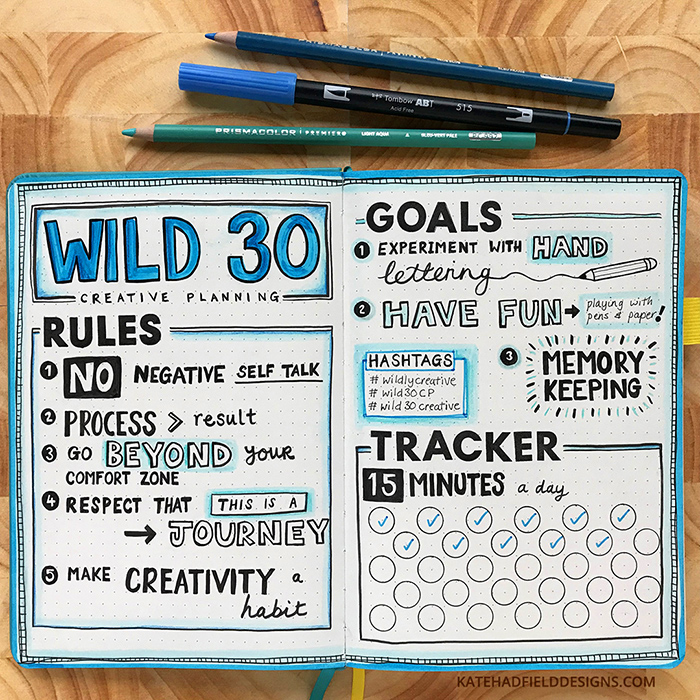 PRISMACOLOR PREMIER LIGHT AQUA BLEU-VERT PALE
Tombow ABT 515
Acid Free
WILD 30
CREATIVE PLANNING
RULES
1 NO NEGATIVE SELF TALK
2 PROCESS > result
3 GO BEYOND your
COMFORT ZONE
4 RESPECT THAT THIS IS A
→ JOURNEY
5 MAKE CREATIVITY a
habit
GOALS
1 EXPERIMENT WITH HAND
lettering
2 HAVE FUN → playing with
pens & paper!
HASHTAGS
# wildlycreative
# wild30CP
# wild30creative
3 MEMORY
KEEPING
TRACKER
15 MINUTES a day
KATEHADFIELDDESIGNS.COM